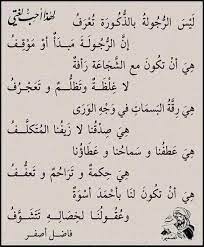 لهذا أحب لغتي
لَيْسَ الرُّجُولَةُ بِالذُّكُورَةِ تُعْرَفُ
إِنَّ الرُّجُولَةَ مَبْدَأٌ أَوْ مَوْقِفُ
هِيَ أَنْ تَكُونَ مَعَ الشَّجَاعَةِ رَأْفَةٌ
لَا غِلْظَةٌ وَتَظَلُّمٌ وَتَعَجْرُفُ
هِيَ رِقَّةُ البَسَمَاتِ فِي وَجْهِ الوَرَى
هِيَ صِدْقُنَا لَا زَيْفُنَا المُتَكَلَّفُ
هِيَ عَطْفُنَا وَسَمَاحُنَا وَعَطَاؤُنَا
هِيَ حِكْمَةٌ وَتَرَاحُمٌ وَتَعَفُّفُ
هِيَ أَنْ تَكُونَ لَنَا بِأَحْمَدَ أُسْوَةٌ
وَعُقُولُنَا لِخِصَالِهِ تَتَشَوَّفُ
فاضل أصفر